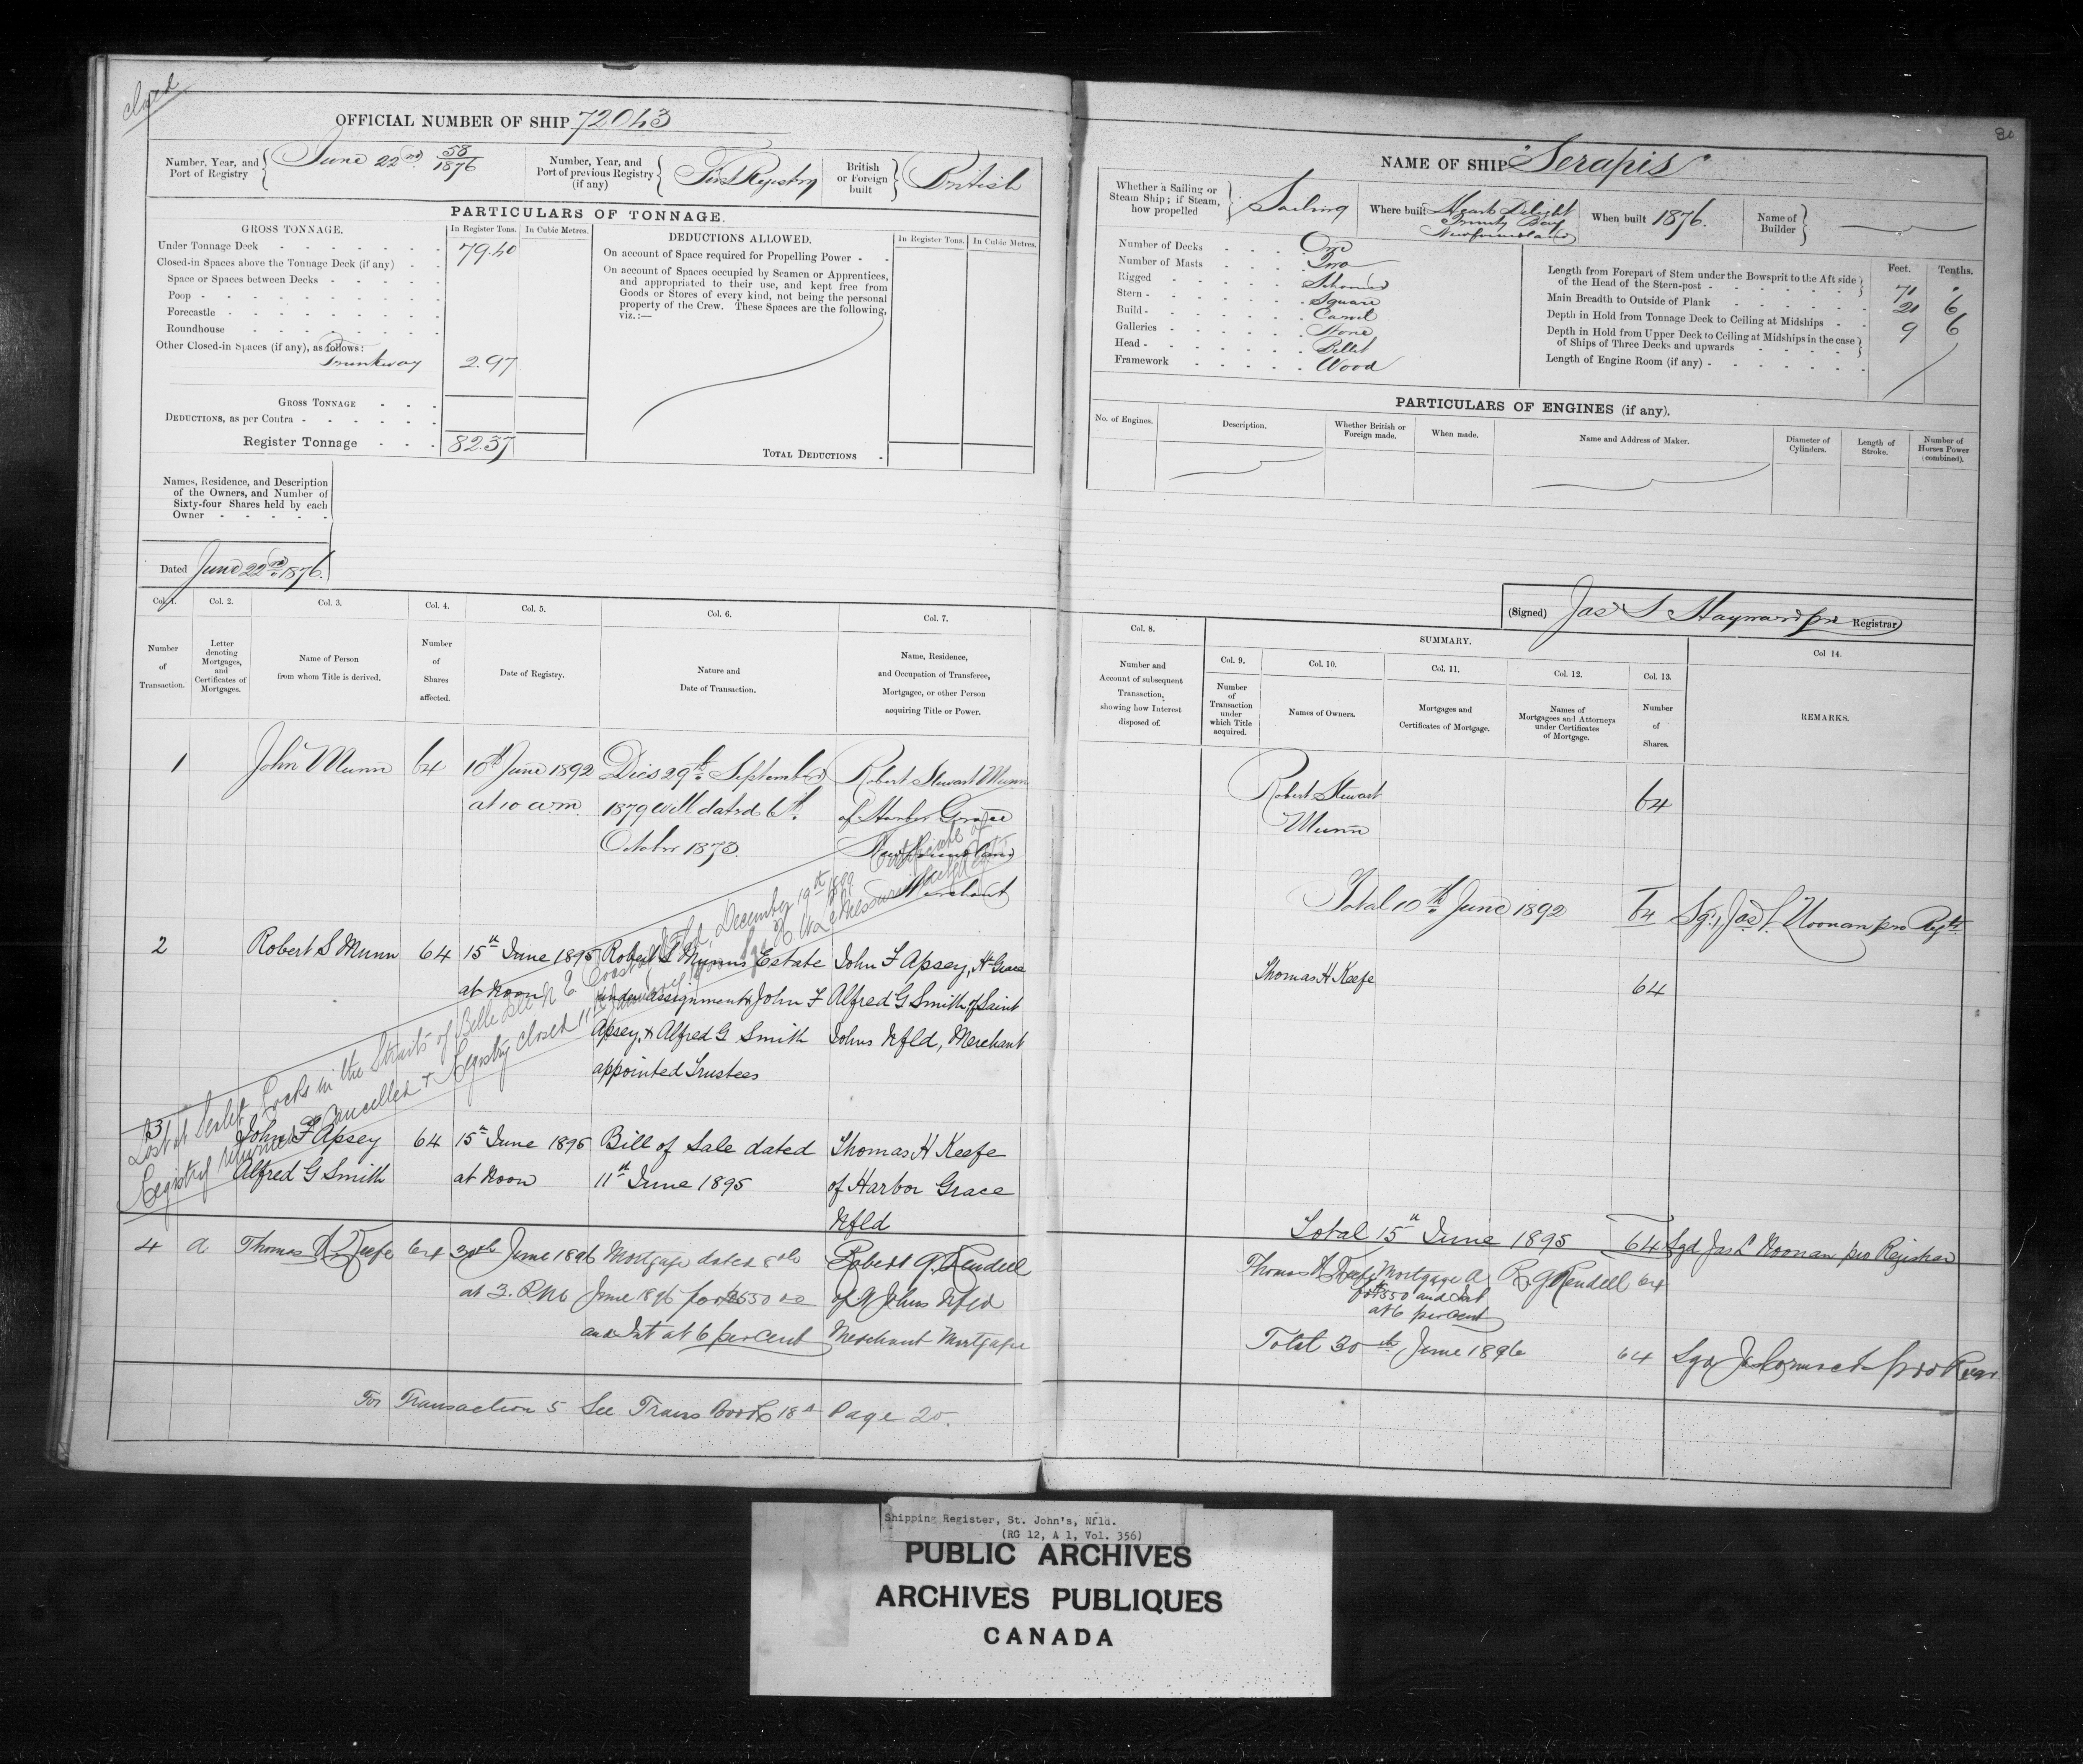 closed
OFFICIAL NUMBER OF SHIP 72043
Number, Year, and Port of Registry June 22nd 58/1876
Number, Year, and Port of previous Registry (if any) First Registry
British or Foreign built British
PARTICULARS OF TONNAGE.
GROSS TONNAGE. In Register Tons. In Cubic Metres.
Under Tonnage Deck 79.40
Closed-in Spaces above the Tonnage Deck (if any)
Space or Spaces between Decks
Poop
Forecastle
Roundhouse
Other Closed-in Spaces (if any), as follows:
Trunkway 2.97
GROSS TONNAGE
DEDUCTIONS, as per Contra
Register Tonnage 82.37
DEDUCTIONS ALLOWED. In Register Tons. In Cubic Metres.
On account of Space required for Propelling Power
On account of Spaces occupied by Seamen or Apprentices,
and appropriated to their use, and kept free from
Goods or Stores of every kind, not being the personal
property of the Crew. These Spaces are the following,
viz.:—
TOTAL DEDUCTIONS
Names, Residence, and Description
of the Owners, and Number of
Sixty-four Shares held by each
Owner
Dated June 22nd 1876.
Col. 1. Col. 2. Col. 3. Col. 4. Col. 5. Col. 6. Col. 7.
Number of Transaction.
Letter denoting Mortgages, and Certificates of Mortgages.
Name of Person from whom Title is derived.
Number of Shares affected.
Date of Registry.
Nature and Date of Transaction.
Name, Residence, and Occupation of Transferee, Mortgagee, or other Person acquiring Title or Power.
1 John Munn 64 10th June 1892 Dies 29th September Robert Stewart Munn
at 10 a.m. 1879 Will dated 6th of Harbor Grace
October 1878. Newfoundland
Merchant
2 Robert S Munn 64 15th June 1895 Robert S Munns Estate John F Apsey, Hr Grace
at Noon under assignment John F Alfred G Smith, of Saint
Apsey, & Alfred G Smith Johns Nfld, Merchant
appointed Trustees
Lost at Rocks in the Straits of Belle Isle N E Coast December 19th Certificate of
Registry cancelled & Registry closed 11th
3 John F Apsey 64 15th June 1895 Bill of Sale dated Thomas H Keefe
Alfred G Smith at Noon 11th June 1895 of Harbor Grace
Nfld
4 a Thomas H Keefe 64 30th June 1896 Mortgage dated 8th Robert G. Rendell
at 3. P.M. June 1896 for $550 of St Johns Nfld
and Int at 6 per cent Merchant Mortgagee
For Transaction 5 See Trans Book 18 A Page 20.
80
NAME OF SHIP "Serapis"
Whether a Sailing or Steam Ship; if Steam, how propelled Sailing
Where built Hearts Delight Trinity Bay Newfoundland
When built 1876.
Name of Builder
Number of Decks One
Number of Masts Two
Rigged Schooner
Stern Square
Build Carvel
Galleries None
Head Billet
Framework Wood
Feet. Tenths.
Length from Forepart of Stem under the Bowsprit to the Aft side of the Head of the Stern-post 71 .
Main Breadth to Outside of Plank 21 6
Depth in Hold from Tonnage Deck to Ceiling at Midships 9 6
Depth in Hold from Upper Deck to Ceiling at Midships in the case of Ships of Three Decks and upwards
Length of Engine Room (if any)
PARTICULARS OF ENGINES (if any).
No. of Engines. Description. Whether British or Foreign made. When made. Name and Address of Maker. Diameter of Cylinders. Length of Stroke. Number of Horses Power (combined).
(Signed) Jas S Hayward pro Registrar
Col. 8. SUMMARY.
Col. 9. Col. 10. Col. 11. Col. 12. Col. 13. Col 14.
Number and Account of subsequent Transaction, showing how Interest disposed of.
Number of Transaction under which Title acquired.
Names of Owners.
Mortgages and Certificates of Mortgage.
Names of Mortgagees and Attorneys under Certificates of Mortgage.
Number of Shares.
REMARKS.
Robert Stewart 64
Munn
Total 10th June 1892 64 Sgd, Jas L. Noonan pro Regtr
Thomas H Keefe 64
Total 15th June 1895 64 Sgd Jas L Noonan pro Registrar
Thomas H Keefe Mortgage A R. G Rendell 64
for $550 and Int
at 6 per cent
Total 30th June 1896 64 Sgd
Shipping Register, St. John's, Nfld.
(RG 12, A 1, Vol. 356)
PUBLIC ARCHIVES
ARCHIVES PUBLIQUES
CANADA